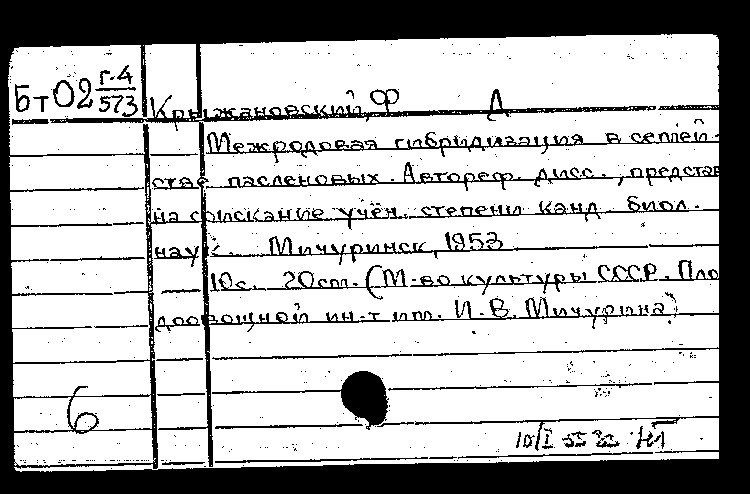 Бт02 г-4/573
Крыжановский, Ф Д
Межродовая гибридизация в семей-
стве пасленовых. Автореф. дисс., представ
на соискание учён. степени канд. биол.
наук. Мичуринск, 1953
10с. 20см. (М-во культуры СССР. Пло
доовощной ин-т им. И. В. Мичурина)
6
10/I 55